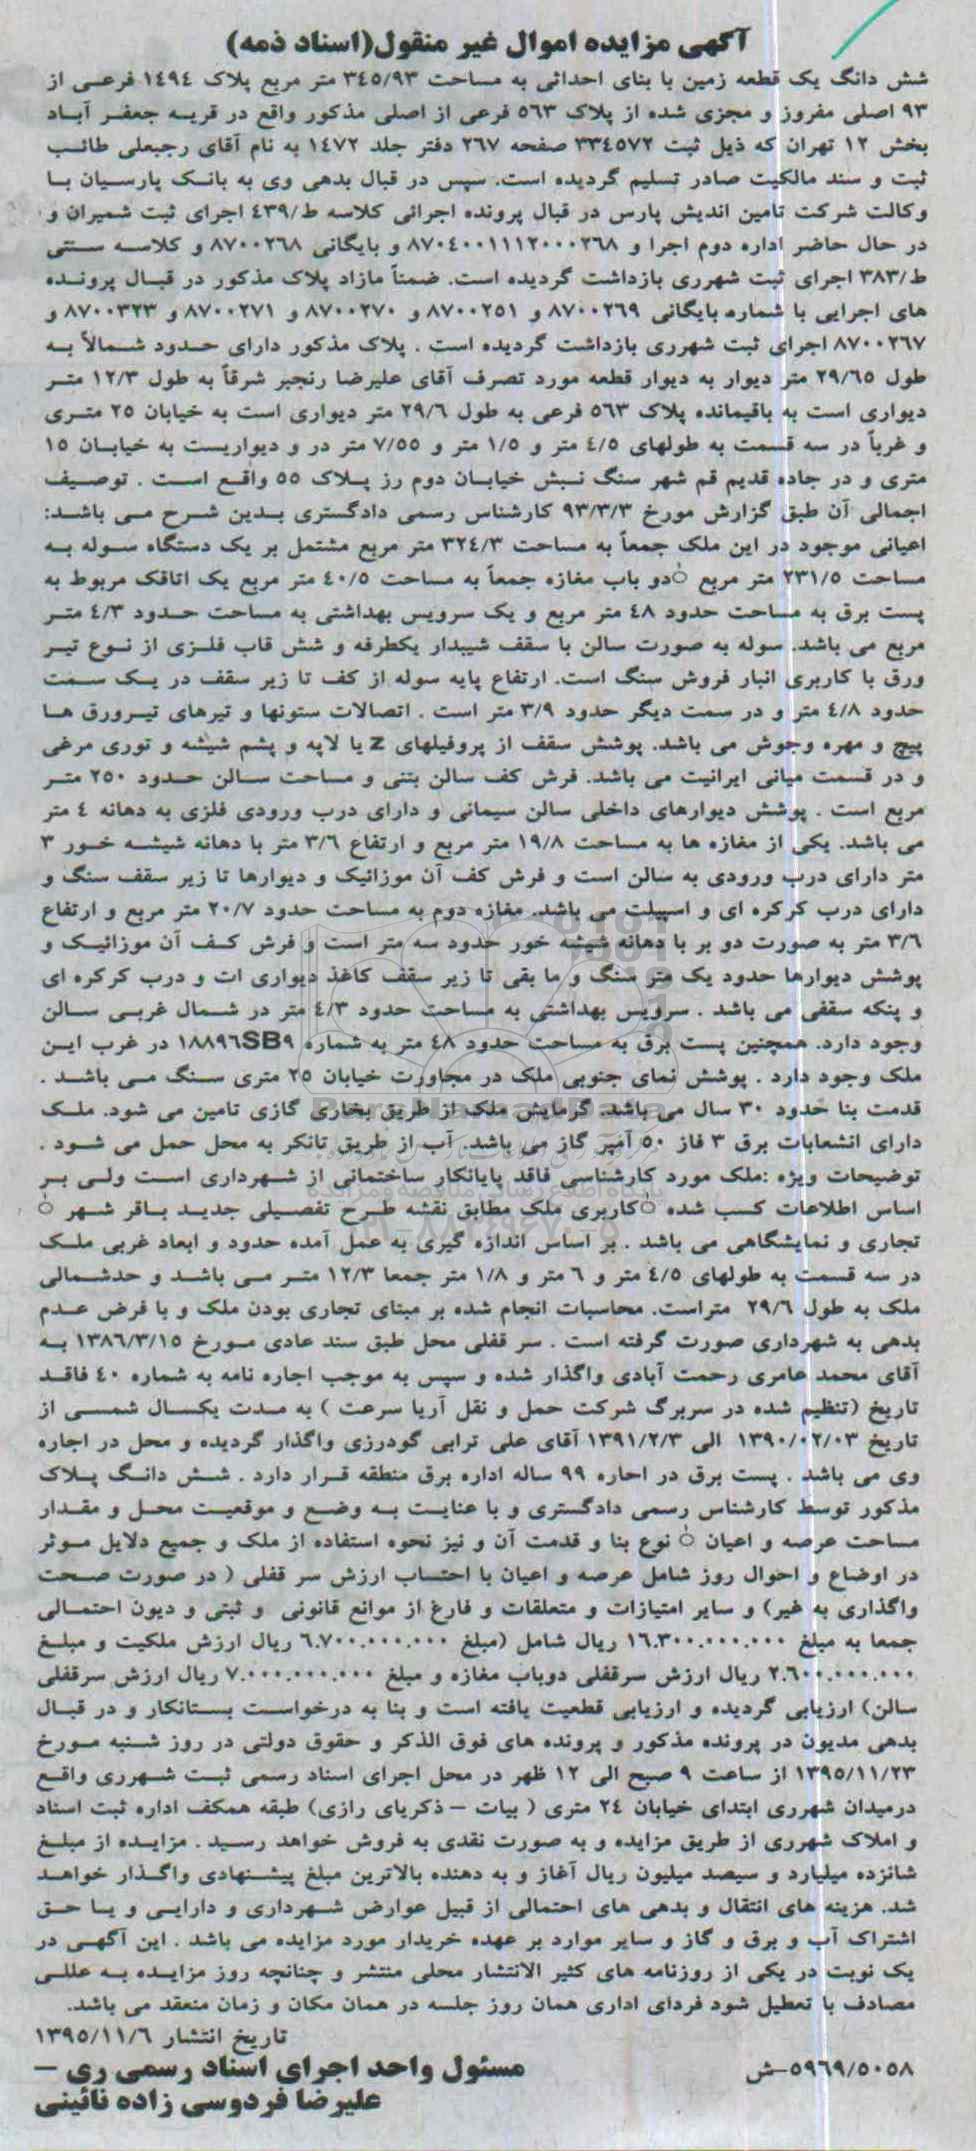 آگهی مزایده اموال غیر منقول(اسناد ذمه)
شش دانگ یک قطعه زمین با بنای احداثی به مساحت ۳٤٥/۹۳ متر مربع پلاک ۱٤۹٤ فرعی از
۹۳ اصلی مفروز و مجزی شده از پلاک ٥٦۳ فرعی از اصلی مذکور واقع در قریه جعفر آباد
بخش ۱۲ تهران که ذیل ثبت ۳۳٤٥۷۲ صفحه ۲٦۷ دفتر جلد ۱٤۷۲ به نام آقای رجبعلی طالب
ثبت و سند مالکیت صادر تسلیم گردیده است. سپس در قبال بدهی وی به بانک پارسیان با
وکالت شرکت تامین اندیش پارس در قبال پرونده اجرائی کلاسه ط/٤۳۹ اجرای ثبت شمیران و
در حال حاضر اداره دوم اجرا و ۸۷۰٤۰۰۱۱۱۲۰۰۰۲٦۸ و بایگانی ۸۷۰۰۲٦۸ و کلاسه سنتی
ط/۳۸۳ اجرای ثبت شهرری بازداشت گردیده است. ضمناً مازاد پلاک مذکور در قبال پرونده
های اجرایی با شماره بایگانی ۸۷۰۰۲٦۹ و ۸۷۰۰۲٥۱ و ۸۷۰۰۲۷۰ و ۸۷۰۰۲۷۱ و ۸۷۰۰۳۲۳ و
۸۷۰۰۲٦۷ اجرای ثبت شهرری بازداشت گردیده است . پلاک مذکور دارای حدود شمالاً به
طول ۲۹/٦٥ متر دیوار به دیوار قطعه مورد تصرف آقای علیرضا رنجبر شرقاً به طول ۱۲/۳ متر
دیواری است به باقیمانده پلاک ٥٦۳ فرعی به طول ۲۹/٦ متر دیواری است به خیابان ۲٥ متری
و غرباً در سه قسمت به طولهای ٤/٥ متر و ۱/٥ متر و ۷/٥٥ متر در و دیواریست به خیابان ۱٥
متری و در جاده قدیم قم شهر سنگ نبش خیابان دوم رز پلاک ٥٥ واقع است . توصیف
اجمالی آن طبق گزارش مورخ ۹۳/۳/۳ کارشناس رسمی دادگستری بدین شرح می باشد:
اعیانی موجود در این ملک جمعاً به مساحت ۳۲٤/۳ متر مربع مشتمل بر یک دستگاه سوله به
مساحت ۲۳۱/٥ متر مربع دو باب مغازه جمعاً به مساحت ٤۰/٥ متر مربع یک اتاقک مربوط به
پست برق به مساحت حدود ٤۸ متر مربع و یک سرویس بهداشتی به مساحت حدود ٤/۳ متر
مربع می باشد. سوله به صورت سالن با سقف شیبدار یکطرفه و شش قاب فلزی از نوع تیر
ورق با کاربری انبار فروش سنگ است. ارتفاع پایه سوله از کف تا زیر سقف در یک سمت
حدود ٤/۸ متر و در سمت دیگر حدود ۳/۹ متر است . اتصالات ستونها و تیرهای تیرورق ها
پیچ و مهره وجوش می باشد. پوشش سقف از پروفیلهای Z با لاپه و پشم شیشه و توری مرغی
و در قسمت میانی ایرانیت می باشد. فرش کف سالن بتنی و مساحت سالن حدود ۲٥۰ متر
مربع است . پوشش دیوارهای داخلی سالن سیمانی و دارای درب ورودی فلزی به دهانه ٤ متر
می باشد. یکی از مغازه ها به مساحت ۱۹/۸ متر مربع و ارتفاع ۳/٦ متر با دهانه شیشه خور ۳
متر دارای درب ورودی به سالن است و فرش کف آن موزائیک و دیوارها تا زیر سقف سنگ و
دارای درب کرکره ای و اسپیلت می باشد. مغازه دوم به مساحت حدود ۲۰/۷ متر مربع و ارتفاع
۳/٦ متر به صورت دو بر با دهانه شیشه خور حدود سه متر است و فرش کف آن موزائیک و
پوشش دیوارها حدود یک متر سنگ و ما بقی تا زیر سقف کاغذ دیواری ات و درب کرکره ای
و پنکه سقفی می باشد . سرویس بهداشتی به مساحت حدود ٤/۳ متر در شمال غربی سالن
وجود دارد. همچنین پست برق به مساحت حدود ٤۸ متر به شماره ۱۸۸۹٦SB۹ در غرب این
ملک وجود دارد . پوشش نمای جنوبی ملک در مجاورت خیابان ۲٥ متری سنگ می باشد .
قدمت بنا حدود ۳۰ سال می باشد. گرمایش ملک از طریق بخاری گازی تامین می شود. ملک
دارای انشعابات برق ۳ فاز ٥۰ آمپر گاز می باشد. آب از طریق تانکر به محل حمل می شود .
توضیحات ویژه :ملک مورد کارشناسی فاقد پایانکار ساختمانی از شهرداری است ولی بر
اساس اطلاعات کسب شده کاربری ملک مطابق نقشه طرح تفصیلی جدید باقر شهر
تجاری و نمایشگاهی می باشد . بر اساس اندازه گیری به عمل آمده حدود و ابعاد غربی ملک
در سه قسمت به طولهای ٤/٥ متر و ٦ متر و ۱/۸ متر جمعا ۱۲/۳ متر می باشد و حدشمالی
ملک به طول ۲۹/٦ متراست. محاسبات انجام شده بر مبنای تجاری بودن ملک و با فرض عدم
بدهی به شهرداری صورت گرفته است . سر قفلی محل طبق سند عادی مورخ ۱۳۸٦/۳/۱٥ به
آقای محمد عامری رحمت آبادی واگذار شده و سپس به موجب اجاره نامه به شماره ٤۰ فاقد
تاریخ (تنظیم شده در سربرگ شرکت حمل و نقل آریا سرعت ) به مدت یکسال شمسی از
تاریخ ۱۳۹۰/۰۲/۰۳ الی ۱۳۹۱/۲/۳ آقای علی ترابی گودرزی واگذار گردیده و محل در اجاره
وی می باشد . پست برق در احاره ۹۹ ساله اداره برق منطقه قرار دارد . شش دانگ پلاک
مذکور توسط کارشناس رسمی دادگستری و با عنایت به وضع و موقعیت محل و مقدار
مساحت عرصه و اعیان نوع بنا و قدمت آن و نیز نحوه استفاده از ملک و جمیع دلایل موثر
در اوضاع و احوال روز شامل عرصه و اعیان با احتساب ارزش سر قفلی ( در صورت صحت
واگذاری به غیر) و سایر امتیازات و متعلقات و فارغ از موانع قانونی و ثبتی و دیون احتمالی
جمعا به مبلغ ۱٦.۳۰۰.۰۰۰.۰۰۰ ریال شامل (مبلغ ٦.۷۰۰.۰۰۰.۰۰۰ ریال ارزش ملکیت و مبلغ
۲.٦۰۰.۰۰۰.۰۰۰ ریال ارزش سرقفلی دوباب مغازه و مبلغ ۷.۰۰۰.۰۰۰.۰۰۰ ریال ارزش سرقفلی
سالن) ارزیابی گردیده و ارزیابی قطعیت یافته است و بنا به درخواست بستانکار و در قبال
بدهی مدیون در پرونده مذکور و پرونده های فوق الذکر و حقوق دولتی در روز شنبه مورخ
۱۳۹٥/۱۱/۲۳ از ساعت ۹ صبح الی ۱۲ ظهر در محل اجرای اسناد رسمی ثبت شهرری واقع
درمیدان شهرری ابتدای خیابان ۲٤ متری ( بیات – ذکریای رازی) طبقه همکف اداره ثبت اسناد
و املاک شهرری از طریق مزایده و به صورت نقدی به فروش خواهد رسید . مزایده از مبلغ
شانزده میلیارد و سیصد میلیون ریال آغاز و به دهنده بالاترین مبلغ پیشنهادی واگذار خواهد
شد. هزینه های انتقال و بدهی های احتمالی از قبیل عوارض شهرداری و دارایی و یا حق
اشتراک آب و برق و گاز و سایر موارد بر عهده خریدار مورد مزایده می باشد . این آگهی در
یک نوبت در یکی از روزنامه های کثیر الانتشار محلی منتشر و چنانچه روز مزایده به عللی
مصادف با تعطیل شود فردای اداری همان روز جلسه در همان مکان و زمان منعقد می باشد.
تاریخ انتشار ۱۳۹٥/۱۱/٦
٥۹٦۹/٥۰٥۸-ش
مسئول واحد اجرای اسناد رسمی ری –
علیرضا فردوسی زاده نائینی